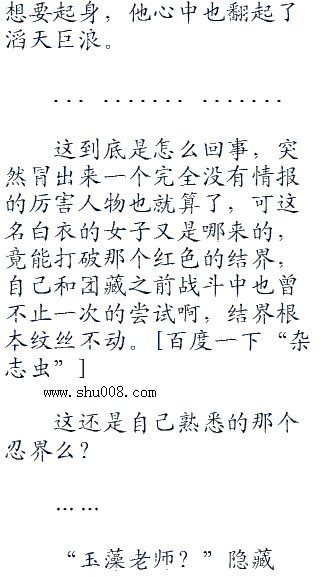 想要起身，他心中也翻起了
滔天巨浪。
... ....... .......
这到底是怎么回事，突
然冒出来一个完全没有情报
的厉害人物也就算了，可这
名白衣的女子又是哪来的，
竟能打破那个红色的结界，
自己和团藏之前战斗中也曾
不止一次的尝试啊，结界根
本纹丝不动。[百度一下“杂
志虫”]
www.shu008.com
这还是自己熟悉的那个
忍界么？
... ...
“玉藻老师？”隐藏